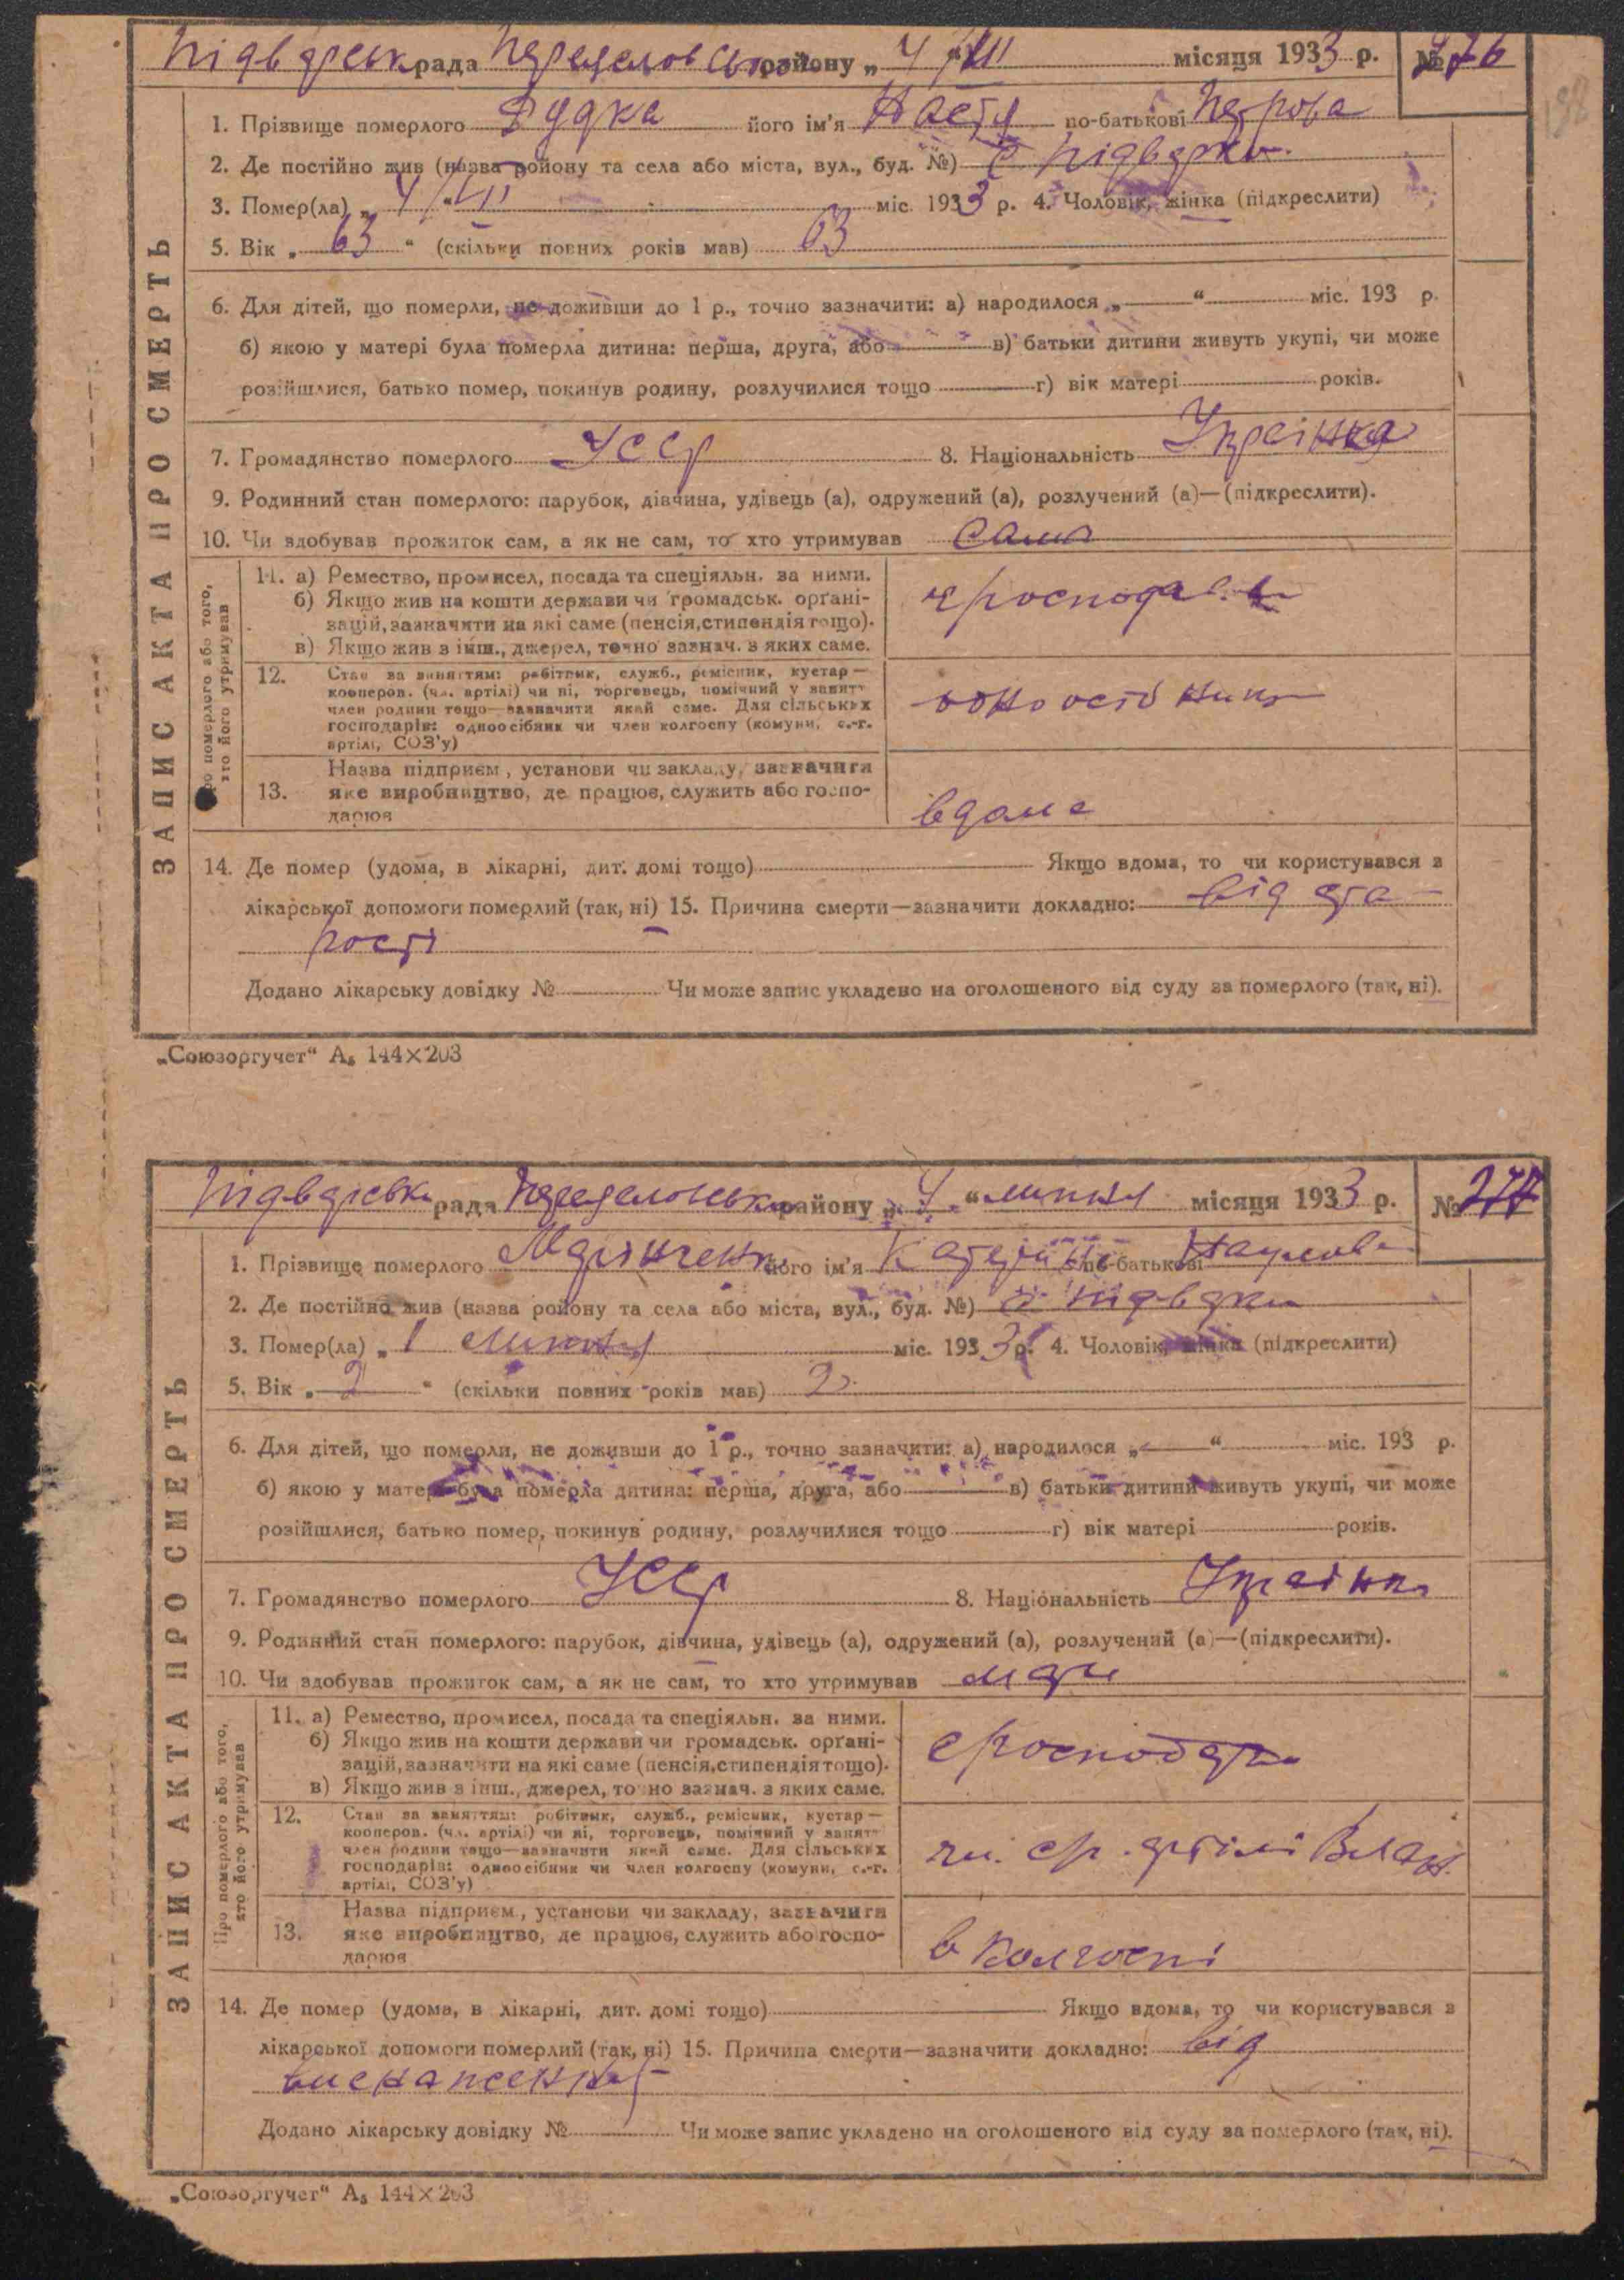 Підварськ рада Переяславського району „ 4 “ /VII місяця 1933 р. № 276
1. Прізвище померлого Дудка його ім'я Настя по-батькові Петрова
2. Де постійно жив (назва району та села або міста, вул., буд. №) с Підварки
3. Помер(ла) „ 4/VII “ міс. 1933 р. 4. Чоловік, жінка (підкреслити)
5. Вік „ 63 “ (скільки повних років мав) 63
6. Для дітей, що померли, не доживши до 1 р., точно зазначити: а) народилося „ “ міс. 193 р.
б) якою у матері була померла дитина: перша, друга, або в) батьки дитини живуть укупі, чи може
розійшлися, батько помер, покинув родину, розлучилися тощо г) вік матері років.
7. Громадянство померлого УССР 8. Національність Украінка
9. Родинний стан померлого: парубок, дівчина, удівець (а), одружений (а), розлучений (а)—(підкреслити).
10. Чи здобував прожиток сам, а як не сам, то хто утримував сама
ЗАПИС АКТА ПРО СМЕРТЬ
Про померлого або того,
хто його утримував
11. а) Ремество, промисел, посада та спеціяльн. за ними.
б) Якщо жив на кошти держави чи громадськ. орґані-
зацій, зазначити на які саме (пенсія, стипендія тощо).
в) Якщо жив з інш., джерел, точно зазнач. з яких саме.
12. Стан за заняттям: робітник, служб., ремісник, кустар—
кооперов. (чл. артілі) чи ні, торговець, помічний у занятт
член родини тощо—зазначити який саме. Для сільських
господарів: одноосібник чи член колгоспу (комуни, с.-г.
артілі, СОЗ'у)
одноосібниця
13. Назва підприєм., установи чи закладу, зазначити
яке виробництво, де працює, служить або госпо-
дарює
вдома
14. Де помер (удома, в лікарні, дит. домі тощо) Якщо вдома, то чи користувався з
лікарської допомоги померлий (так, ні) 15. Причина смерти—зазначити докладно: від ста-
рості
Додано лікарську довідку № Чи може запис укладено на оголошеного від суду за померлого (так, ні).
„Союзоргучет“ А₅ 144×203
Підварська рада Переяславського району „ 4 “ липня місяця 1933 р. № 277
1. Прізвище померлого його ім'я Катерина по-батькові Наумова
2. Де постійно жив (назва району та села або міста, вул., буд. №) с Підварки
3. Помер(ла) „ 1 липня міс. 1933 р. 4. Чоловік, жінка (підкреслити)
5. Вік „ 2 “ (скільки повних років мав) 2
6. Для дітей, що померли, не доживши до 1 р., точно зазначити: а) народилося „ “ міс. 193 р.
б) якою у матері була померла дитина: перша, друга, або в) батьки дитини живуть укупі, чи може
розійшлися, батько помер, покинув родину, розлучилися тощо г) вік матері років.
7. Громадянство померлого УССР 8. Національність Украінка
9. Родинний стан померлого: парубок, дівчина, удівець (а), одружений (а), розлучений (а)—(підкреслити).
10. Чи здобував прожиток сам, а як не сам, то хто утримував мати
ЗАПИС АКТА ПРО СМЕРТЬ
Про померлого або того,
хто його утримував
11. а) Ремество, промисел, посада та спеціяльн. за ними.
б) Якщо жив на кошти держави чи громадськ. орґані-
зацій, зазначити на які саме (пенсія, стипендія тощо).
в) Якщо жив з інш., джерел, точно зазнач. з яких саме.
12. Стан за заняттям: робітник, служб., ремісник, кустар—
кооперов. (чл. артілі) чи ні, торговець, помічний у занятт
член родини тощо—зазначити який саме. Для сільських
господарів: одноосібник чи член колгоспу (комуни, с.-г.
артілі, СОЗ'у)
13. Назва підприєм., установи чи закладу, зазначити
яке виробництво, де працює, служить або госпо-
дарює
в колгоспі
14. Де помер (удома, в лікарні, дит. домі тощо) Якщо вдома, то чи користувався з
лікарської допомоги померлий (так, ні) 15. Причина смерти—зазначити докладно: від
виснаження
Додано лікарську довідку № Чи може запис укладено на оголошеного від суду за померлого (так, ні).
„Союзоргучет“ А₅ 144×203